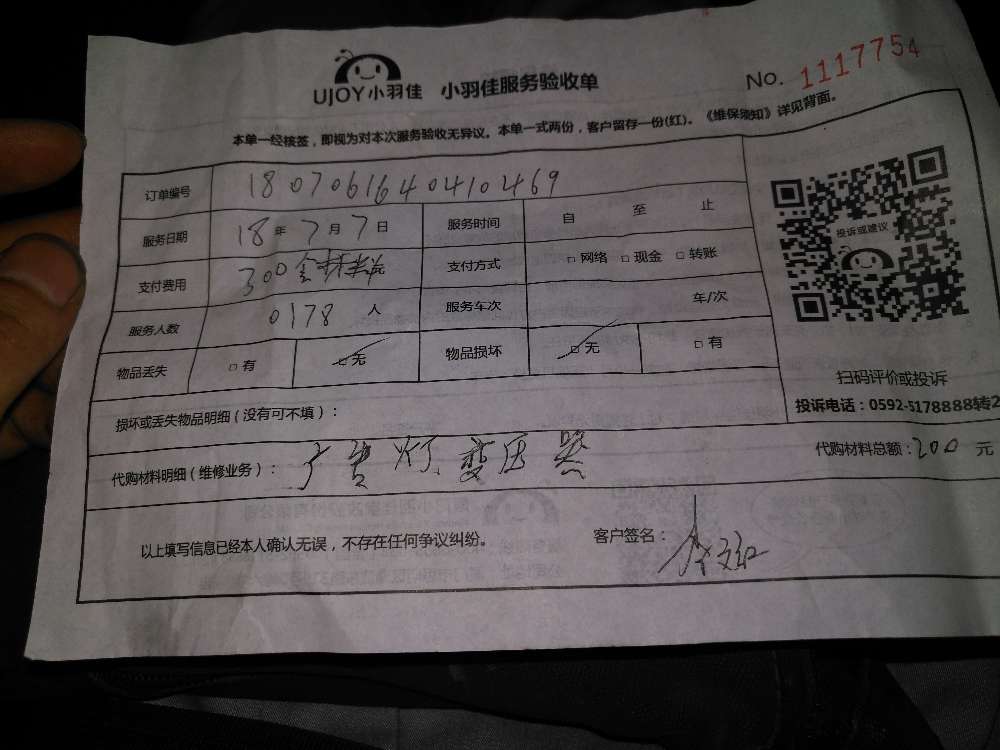 UJOY小羽佳 小羽佳服务验收单 No. 1117754
本单一经核签，即视为对本次服务验收无异议。本单一式两份，客户留存一份(红)。《维保须知》详见背面。
订单编号 180706164040410469
服务日期 18年7月7日 服务时间 自 至 止
支付费用 300 支付方式 □网络 □现金 □转账
服务人数 0178 人 服务车次 年/次
物品丢失 □有 □无 物品损坏 □无 □有
投诉或建议
扫码评价或投诉
投诉电话：0592-5178888转2
损坏或丢失物品明细（没有可不填）：
代购材料明细（维修业务）： 广告灯 变压器 代购材料总额：200 元
以上填写信息已经本人确认无误，不存在任何争议纠纷。 客户签名：